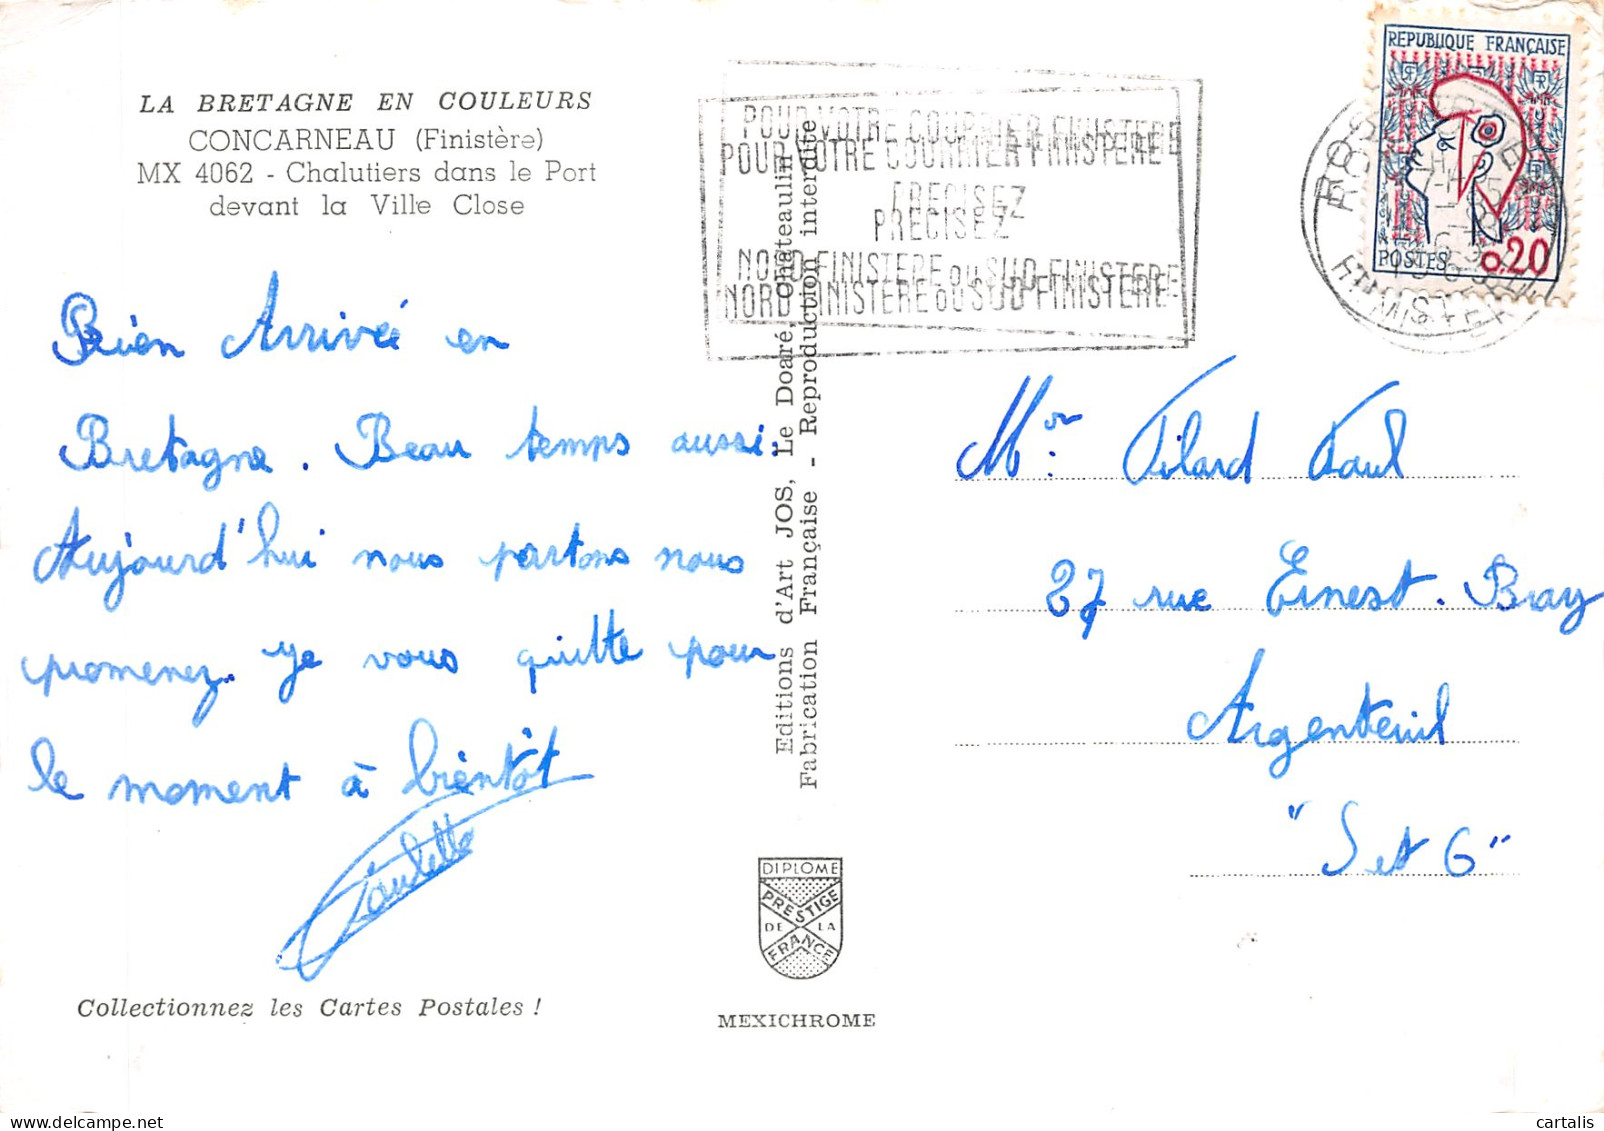 LA BRETAGNE EN COULEURS
CONCARNEAU (Finistère)
MX 4062 - Chalutiers dans le Port
devant la Ville Close
Bien Arrivée en
Bretagne. Beau temps aussi.
Aujourd'hui nous partons nous
promenez. Je vous quitte pour
le moment à bientôt
Paulette
Collectionnez les Cartes Postales !
Editions d'Art JOS, Le Doaré, Châteaulin
Fabrication Française - Reproduction interdite
DIPLOME
PRESTIGE
DE LA
FRANCE
MEXICHROME
POUR VOTRE COURRIER FINISTERE
PRECISEZ
NORD FINISTERE OU SUD FINISTERE
REPUBLIQUE FRANÇAISE
POSTES 0.20
FINISTERE
Mr: Filard Paul
27 rue Ernest. Bray
Argenteuil
"S et O"
cartalis